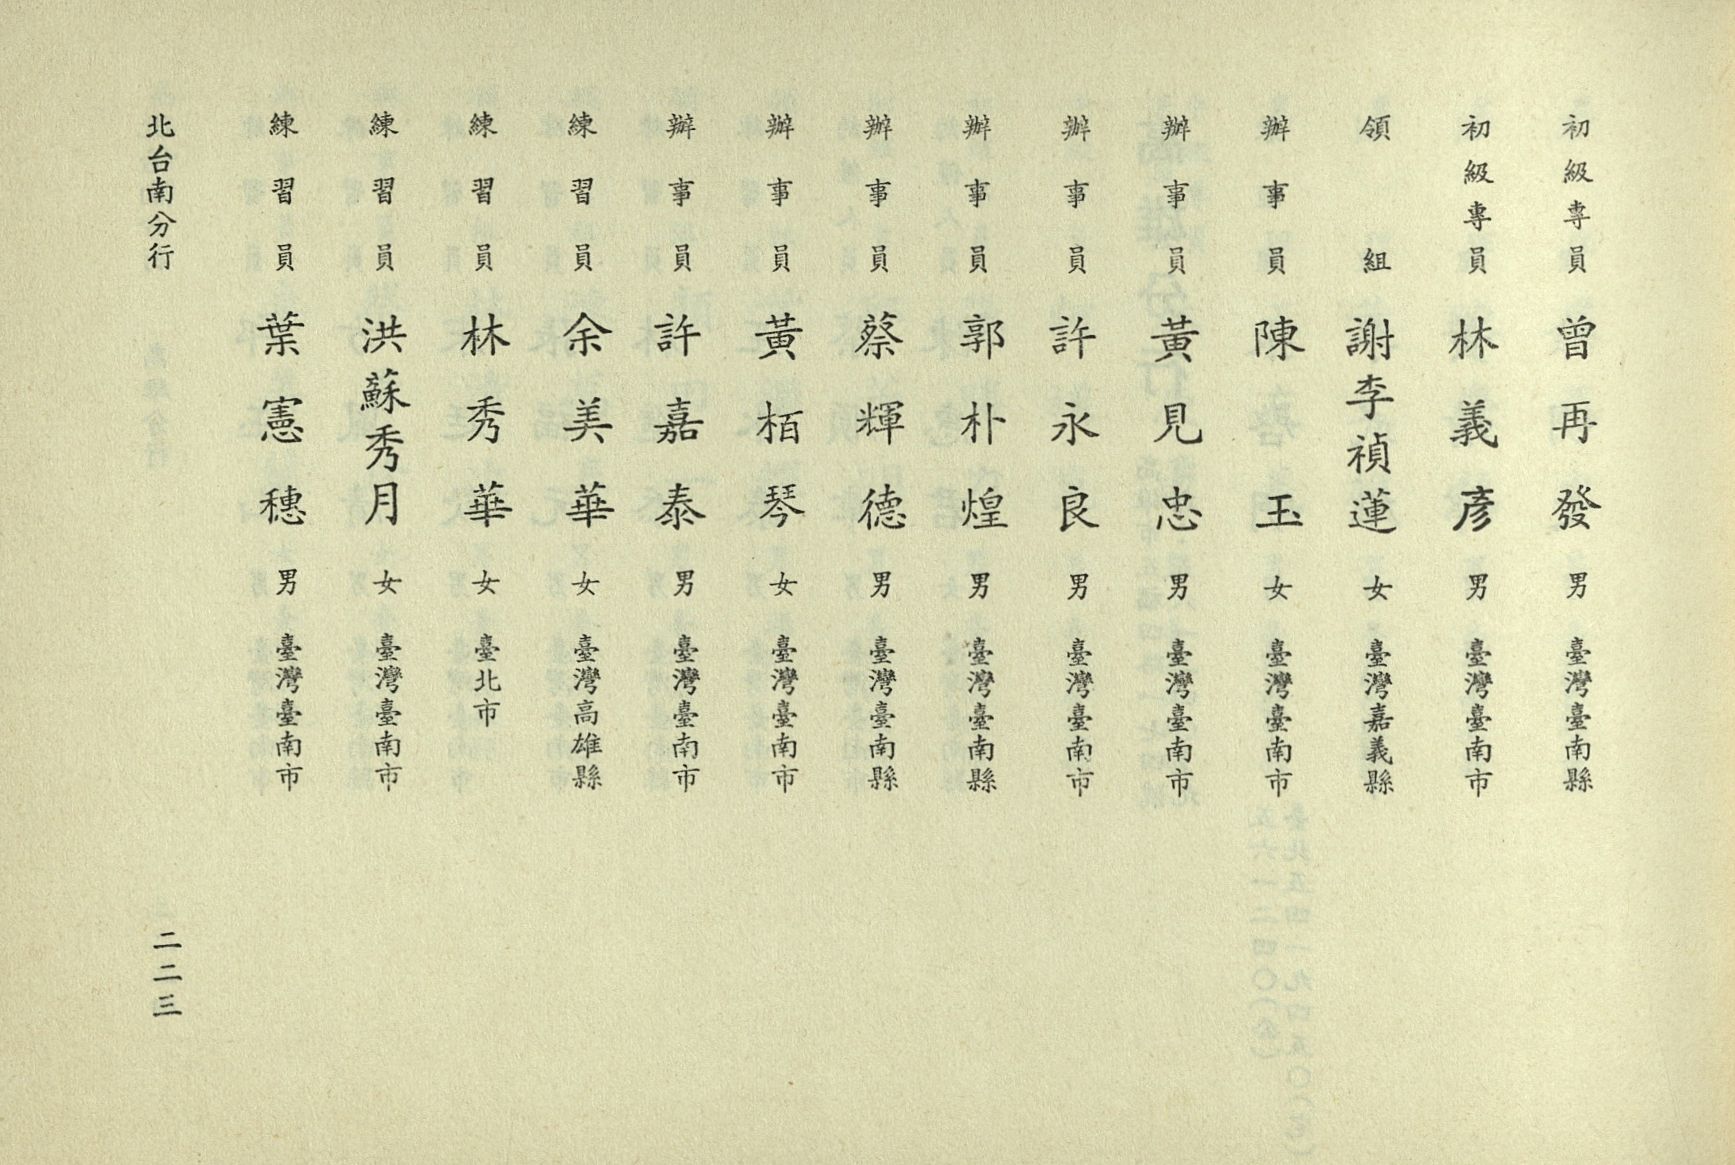 初級專員 曾再發 男 臺灣臺南縣
初級專員 林義彥 男 臺灣臺南市
領組 謝李禎蓮 女 臺灣嘉義縣
辦事員 陳玉 女 臺灣臺南市
辦事員 黃見忠 男 臺灣臺南市
辦事員 許永良 男 臺灣臺南市
辦事員 郭朴煌 男 臺灣臺南縣
辦事員 蔡輝德 男 臺灣臺南縣
辦事員 黃栢琴 女 臺灣臺南市
辦事員 許嘉泰 男 臺灣臺南市
練習員 余美華 女 臺灣高雄縣
練習員 林秀華 女 臺北市
練習員 洪蘇秀月 女 臺灣臺南市
練習員 葉憲穗 男 臺灣臺南市
北台南分行 二二三